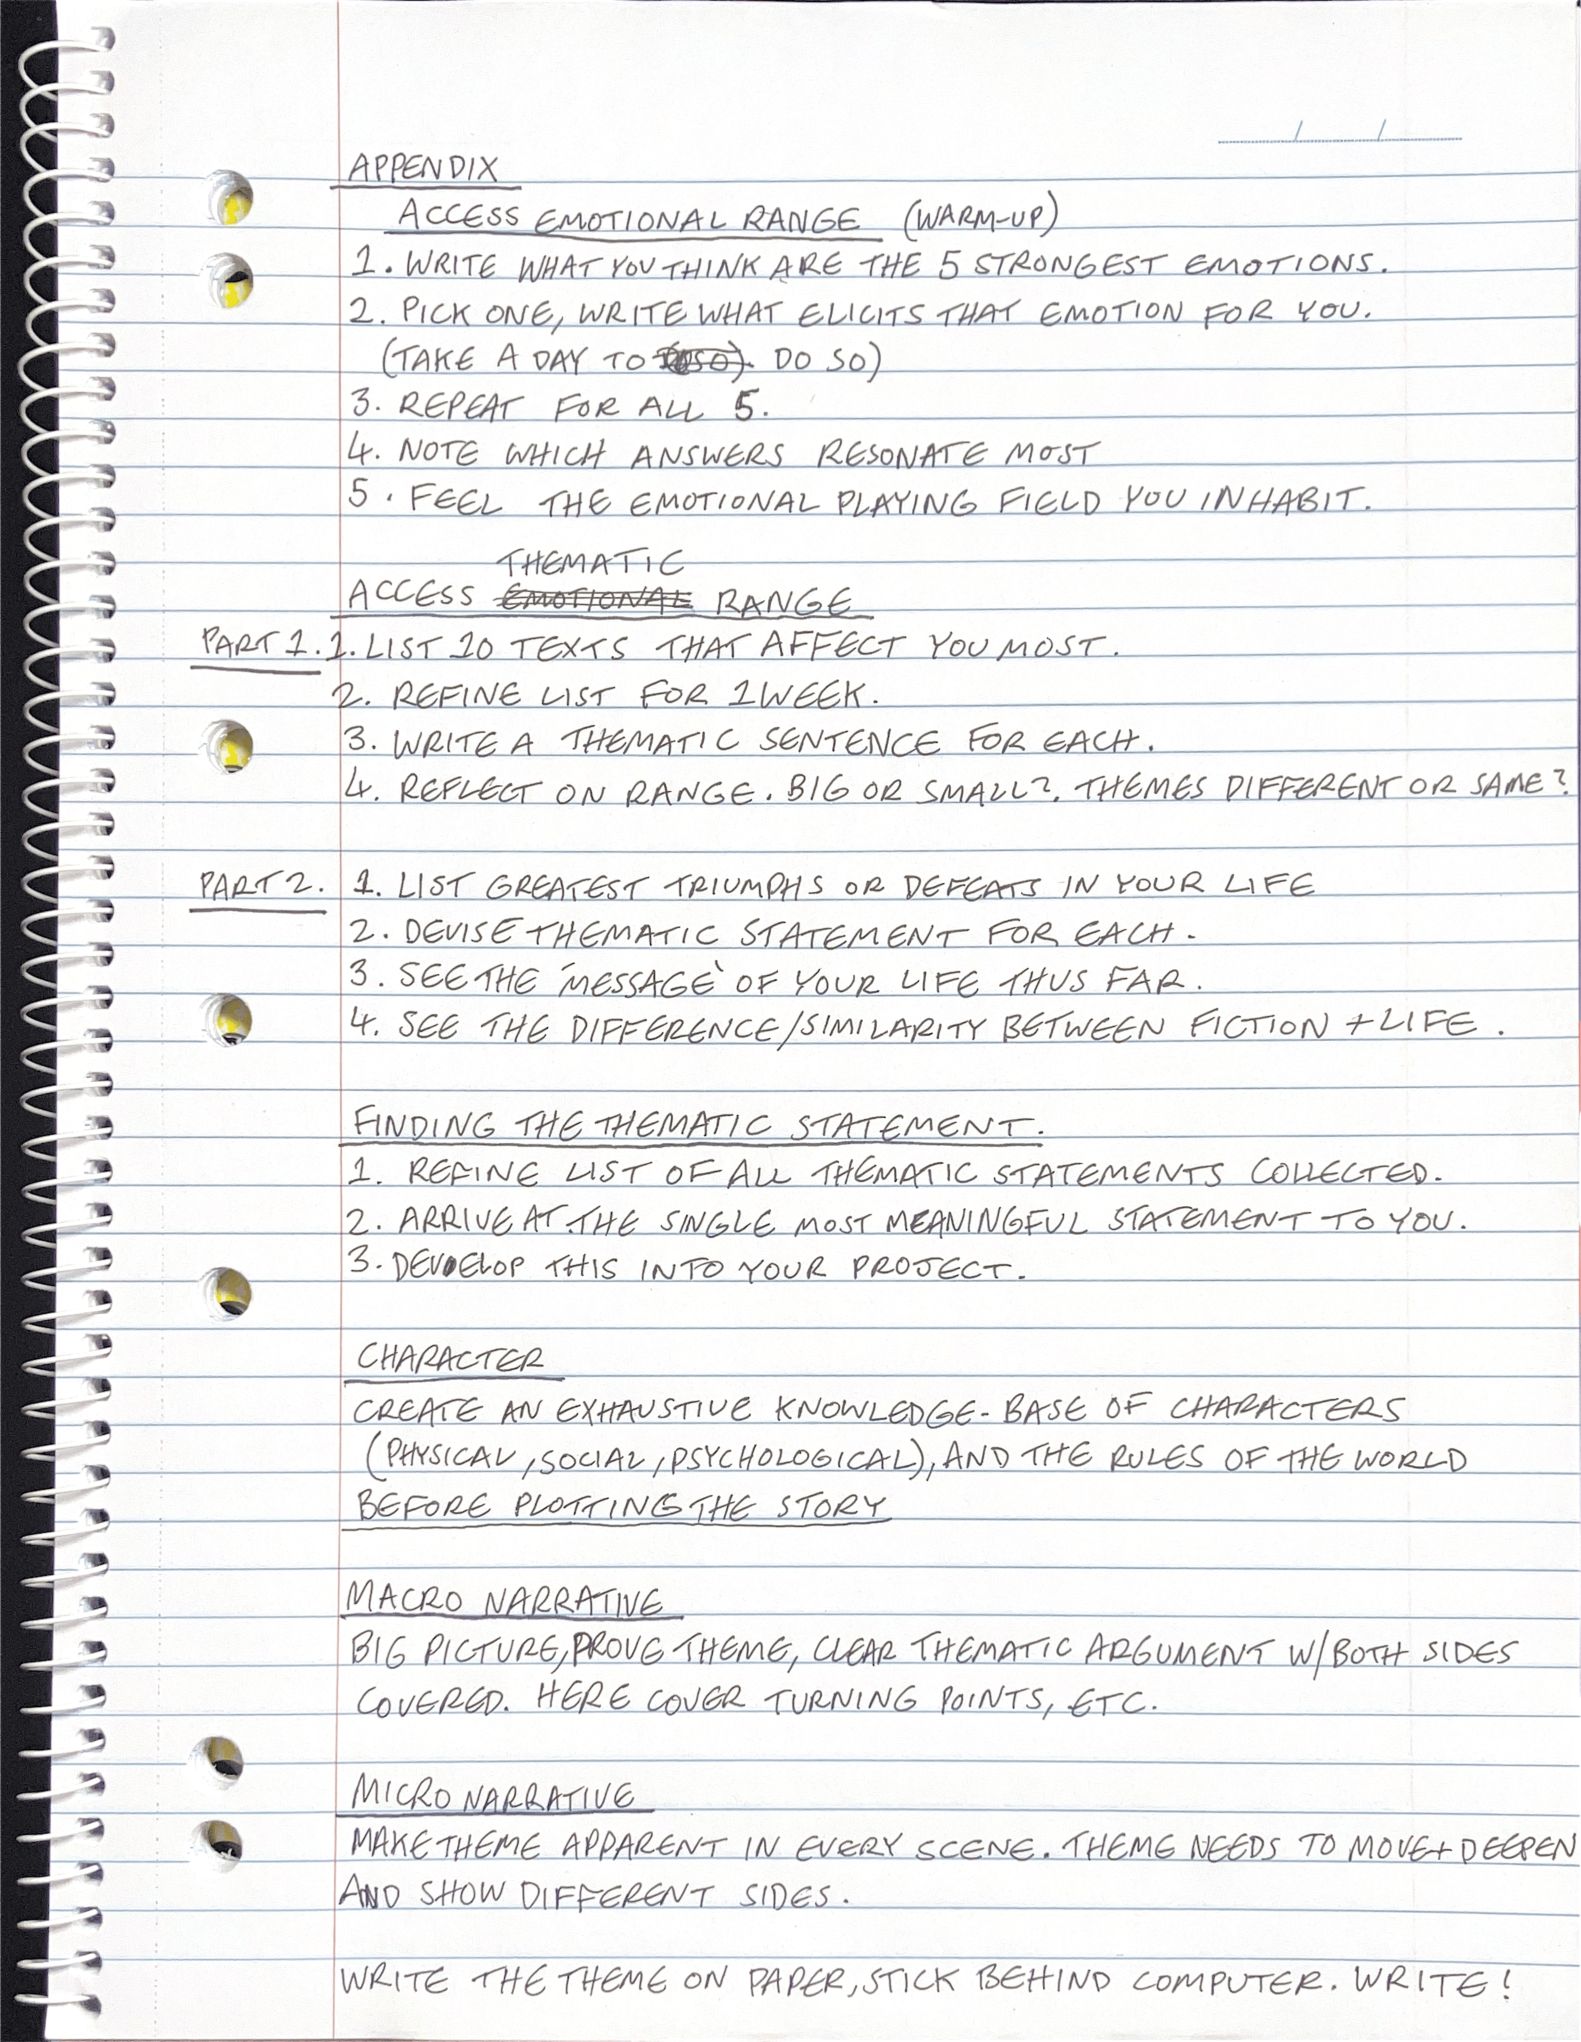 APPENDIX
ACCESS EMOTIONAL RANGE (WARM-UP)
1. WRITE WHAT YOU THINK ARE THE 5 STRONGEST EMOTIONS.
2. PICK ONE, WRITE WHAT ELICITS THAT EMOTION FOR YOU.
(TAKE A DAY TO DO SO)
3. REPEAT FOR ALL 5.
4. NOTE WHICH ANSWERS RESONATE MOST
5. FEEL THE EMOTIONAL PLAYING FIELD YOU INHABIT.
THEMATIC
ACCESS EMOTIONAL RANGE
PART 1. 1. LIST 10 TEXTS THAT AFFECT YOU MOST.
2. REFINE LIST FOR 1 WEEK.
3. WRITE A THEMATIC SENTENCE FOR EACH.
4. REFLECT ON RANGE. BIG OR SMALL?. THEMES DIFFERENT OR SAME?
PART 2. 1. LIST GREATEST TRIUMPHS OR DEFEATS IN YOUR LIFE
2. DEVISE THEMATIC STATEMENT FOR EACH.
3. SEE THE 'MESSAGE' OF YOUR LIFE THUS FAR.
4. SEE THE DIFFERENCE/SIMILARITY BETWEEN FICTION + LIFE.
FINDING THE THEMATIC STATEMENT.
1. REFINE LIST OF ALL THEMATIC STATEMENTS COLLECTED.
2. ARRIVE AT THE SINGLE MOST MEANINGFUL STATEMENT TO YOU.
3. DEVELOP THIS INTO YOUR PROJECT.
CHARACTER
CREATE AN EXHAUSTIVE KNOWLEDGE-BASE OF CHARACTERS
(PHYSICAL, SOCIAL, PSYCHOLOGICAL), AND THE RULES OF THE WORLD
BEFORE PLOTTING THE STORY
MACRO NARRATIVE
BIG PICTURE, PROVE THEME, CLEAR THEMATIC ARGUMENT W/BOTH SIDES
COVERED. HERE COVER TURNING POINTS, ETC.
MICRO NARRATIVE
MAKE THEME APPARENT IN EVERY SCENE. THEME NEEDS TO MOVE + DEEPEN
AND SHOW DIFFERENT SIDES.
WRITE THE THEME ON PAPER, STICK BEHIND COMPUTER. WRITE!